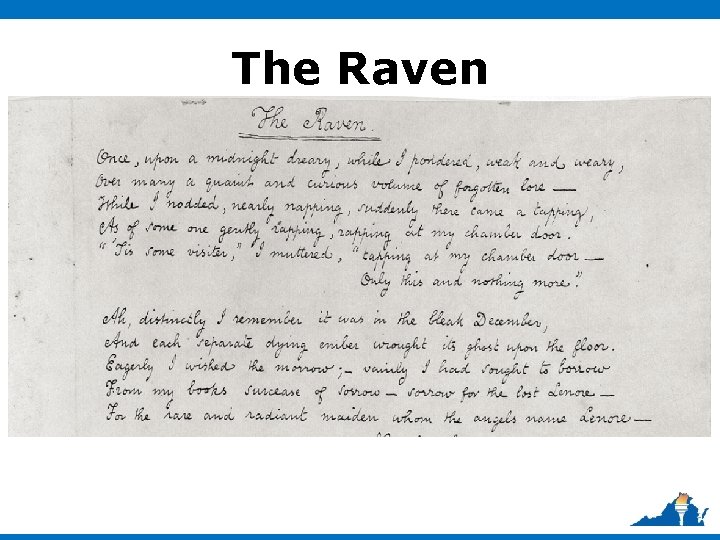 The Raven
The Raven.
Once, upon a midnight dreary, while I pondered, weak and weary,
Over many a quaint and curious volume of forgotten lore —
While I nodded, nearly napping, suddenly there came a tapping,
As of some one gently rapping, rapping at my chamber door.
"'Tis some visiter," I muttered, "tapping at my chamber door —
Only this and nothing more."
Ah, distinctly I remember it was in the bleak December,
And each separate dying ember wrought its ghost upon the floor.
Eagerly I wished the morrow; – vainly I had sought to borrow
From my books surcease of sorrow – sorrow for the lost Lenore –
For the rare and radiant maiden whom the angels name Lenore —